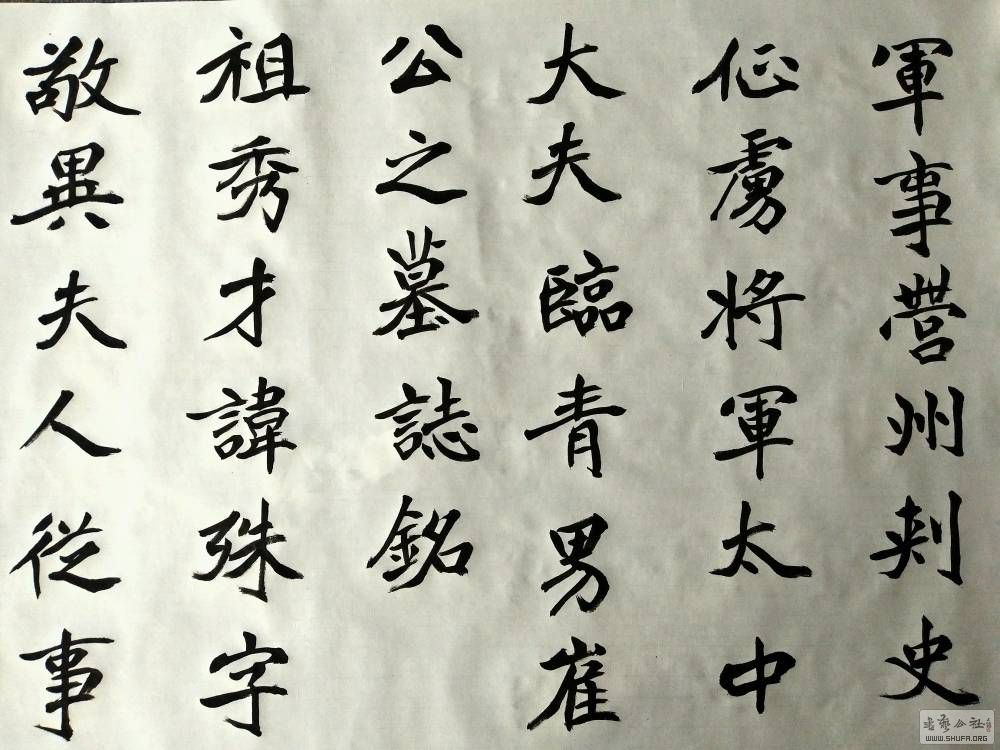 軍事營州刺史
征虜將軍太中
大夫臨青男崔
公之墓誌銘
祖秀才諱殊字
敬異夫人從事
书艺公社
WWW.SHUFA.ORG